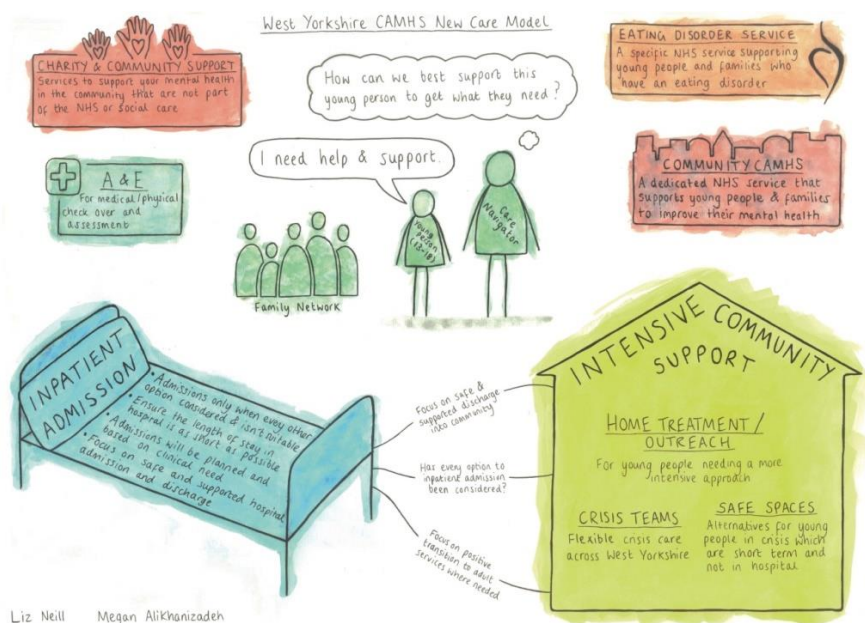 West Yorkshire CAMHS New Care Model
CHARITY & COMMUNITY SUPPORT
Services to support your mental health
in the community that are not part
of the NHS or social care
How can we best support this
young person to get what they need?
EATING DISORDER SERVICE
A specific NHS service supporting
young people and families who
have an eating disorder
A & E
For medical/physical
check over and
assessment
I need help & support..
COMMUNITY CAMHS
A dedicated NHS service that
supports young people & families
to improve their mental health
Young
Person
(13-18)
Care
Navigator
Family Network
INPATIENT
ADMISSION
• Admissions only when every other
option considered & isn't suitable
• Ensure the length of stay in
hospital is as short as possible
• Admissions will be planned and
based on clinical need
• Focus on safe and supported hospital
admission and discharge
Focus on safe &
supported discharge
into community
Has every option to
inpatient admission
been considered?
Focus on positive
transition to adult
services where needed
INTENSIVE COMMUNITY
SUPPORT
HOME TREATMENT/
OUTREACH
For young people needing a more
intensive approach
CRISIS TEAMS
Flexible crisis care
across West Yorkshire
SAFE SPACES
Alternatives for young
people in crisis which
are short term and
not in hospital
Liz Neill Megan Alikhanizadeh